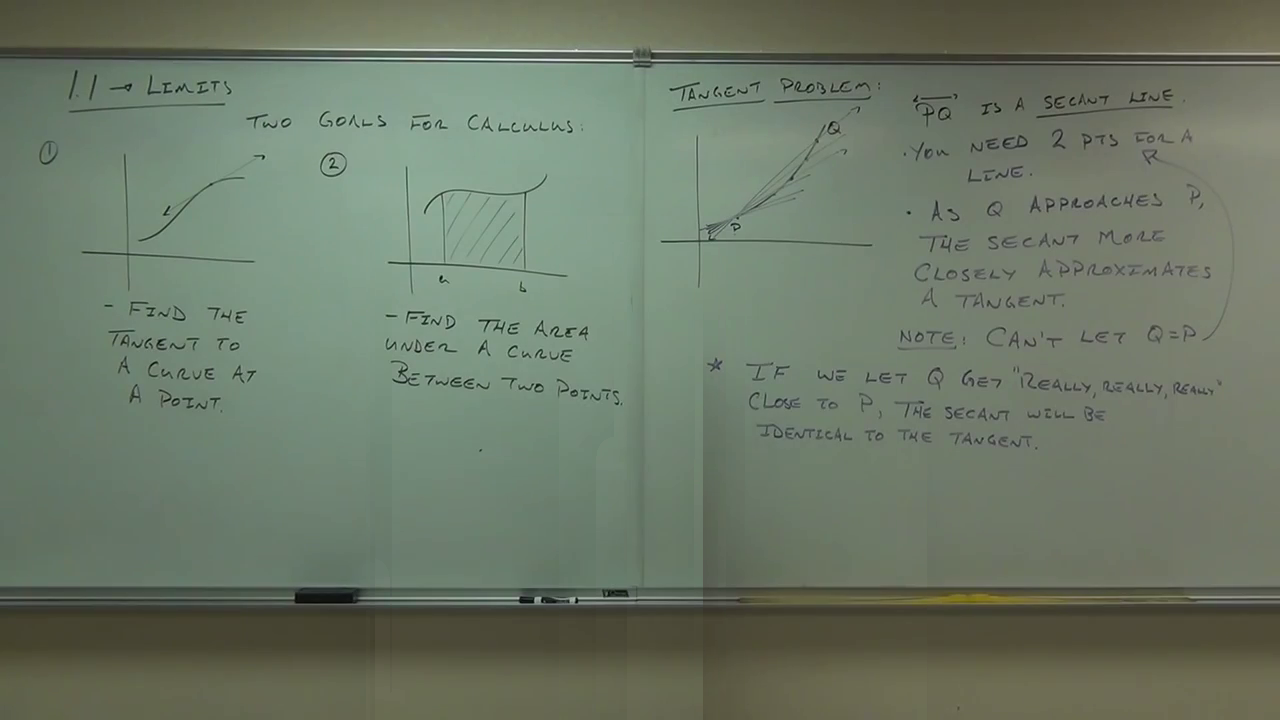 1.1 → LIMITS
TWO GOALS FOR CALCULUS:
①
- FIND THE
TANGENT TO
A CURVE AT
A POINT.
②
a b
- FIND THE AREA
UNDER A CURVE
BETWEEN TWO POINTS.
TANGENT PROBLEM:
Q
P
PQ IS A SECANT LINE.
· YOU NEED 2 PTS FOR A
LINE.
· AS Q APPROACHES P,
THE SECANT MORE
CLOSELY APPROXIMATES
A TANGENT.
NOTE: CAN'T LET Q=P
* IF WE LET Q GET "REALLY, REALLY, REALLY"
CLOSE TO P, THE SECANT WILL BE
IDENTICAL TO THE TANGENT.